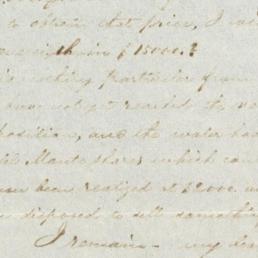 to obtain that price, I
than $15000.?
nothing particular from
not yet reached the
position, and the water has
Manto shares which
been realized at $2000
disposed to sell something
I remain - my dear